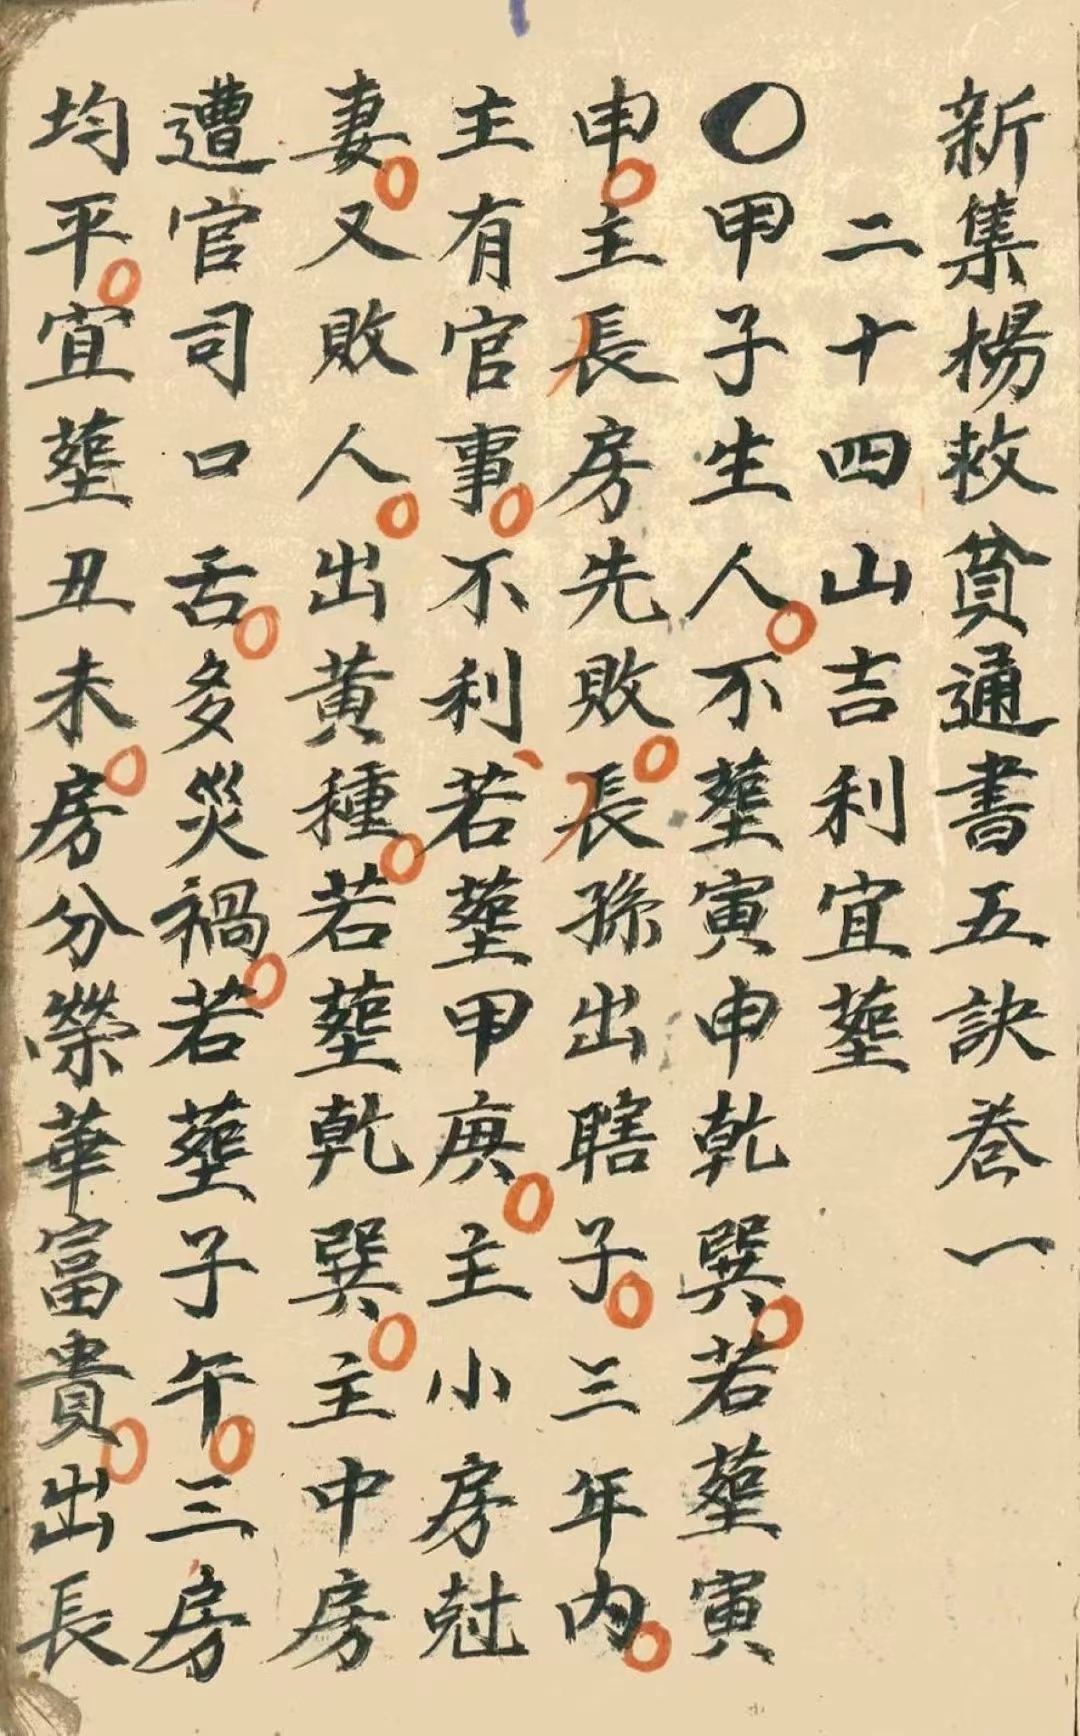 新集楊救貧通書五訣卷一
二十四山吉利宜塟
〇甲子生人。不塟寅申乾巽。若塟寅
申。主長房先敗。長孫出瞎子。三年内。
主有官事。不利、若塟甲庚。主小房尅
妻。又敗人。出黄種。若塟乾巽。主中房
遭官司口舌。多災禍。若塟子午。三房
均平。宜塟丑未。房分榮華富貴。出長